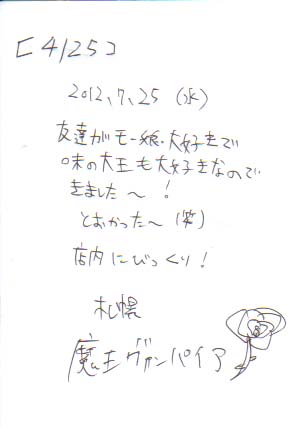 [4/25]
2012.7.25 (水)
友達がモー娘.大好きで
味の大王も大好きなので
きました〜!
とおかった〜(笑)
店内にびっくり!
札幌
魔王ヴァンパイア